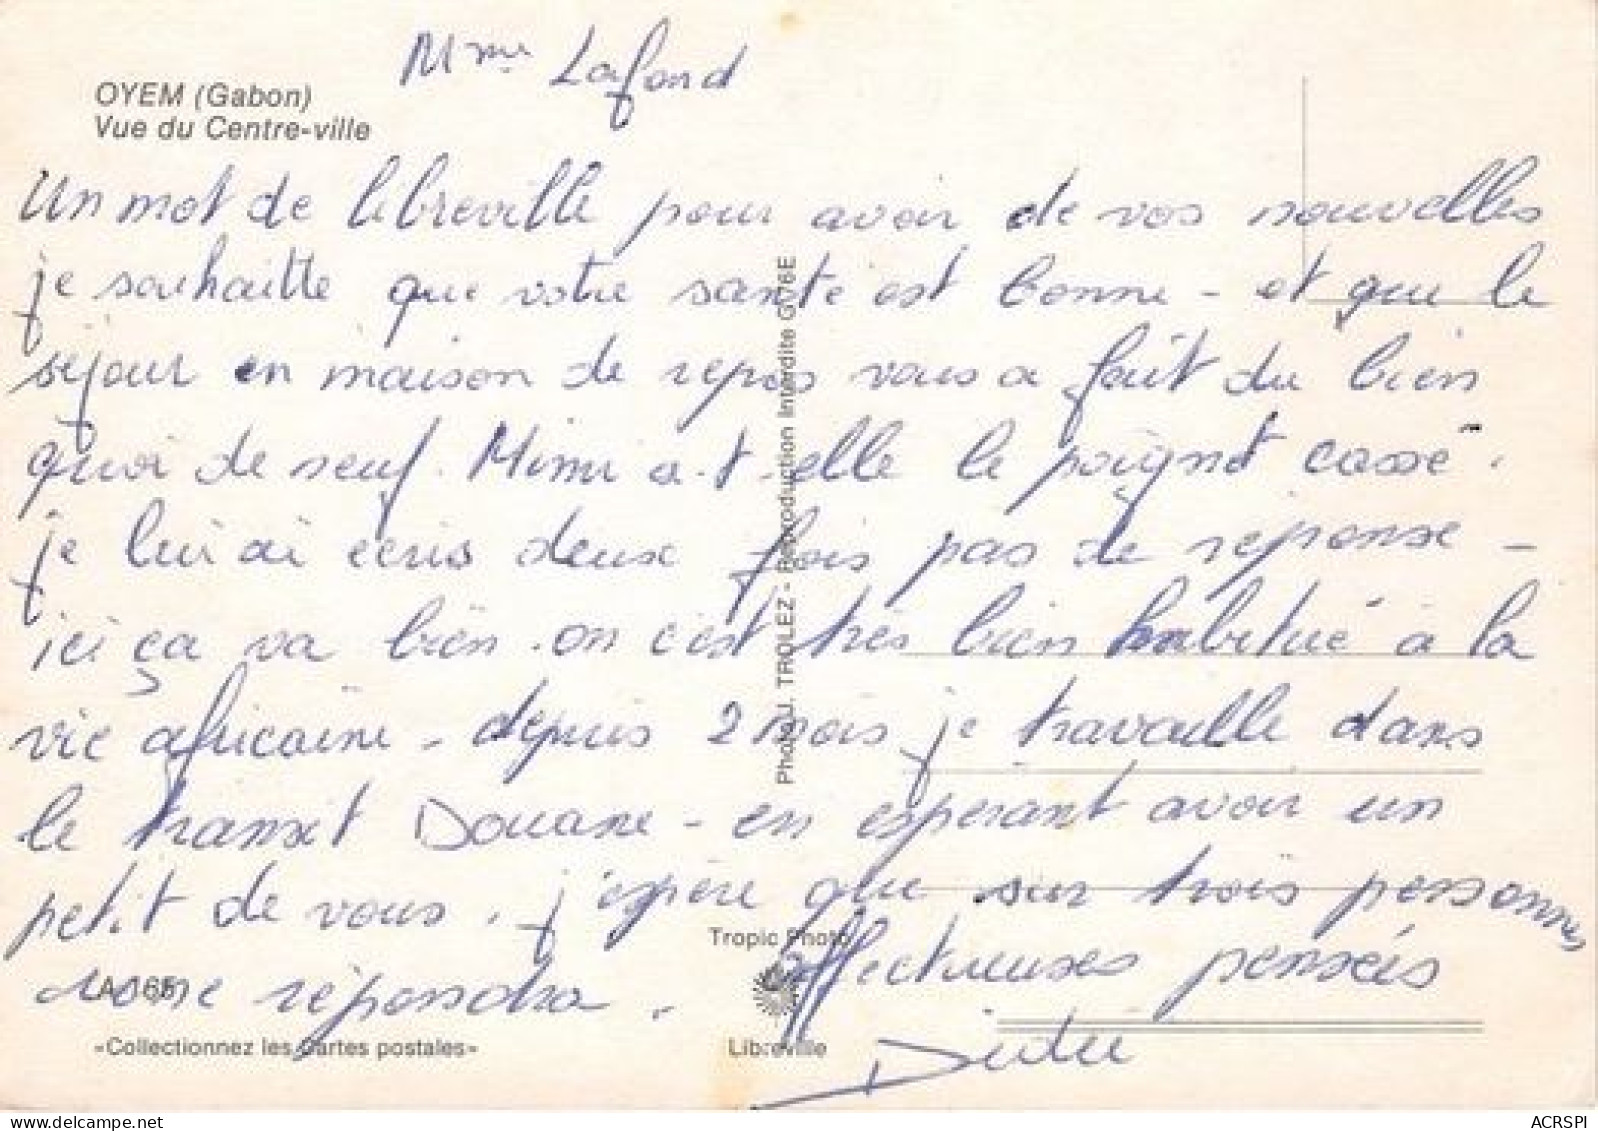 Mme Lafond
OYEM (Gabon)
Vue du Centre-ville
Un mot de libreville pour avoir de vos nouvelles
je souhaitte que votre santé est bonne - et que le
séjour en maison de repos vous a fait du bien
quoi de neuf. Mimi a-t-elle le poignet cassé.
je lui ai écris deux fois pas de réponse -
ici ça va bien. on c'est très bien habitué à la
vie africaine - depuis 2 mois je travaille dans
le transit Douane - en espérant avoir un
petit de vous. j'espère que sur trois personnes
une répondra.
affectueuses pensées
Didié
A 165
«Collectionnez les cartes postales»
Photo J. TROLEZ - Reproduction Interdite G 76E
Tropic Photo
Libreville
ACRSPI